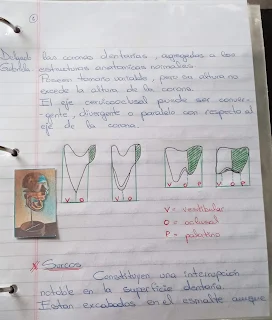 5
las coronas dentarias, agregadas a las
estructuras anatomicas normales.
Poseen tamaño variable, pero su altura no
excede la altura de la corona.
El eje cervicooclusal puede ser conver-
gente, divergente o paralelo con respecto al
eje de la corona.
V O
V O
V O P
V O P
V = vestibular
O = oclusal
P = palatino
* Surcos
Constituyen una interrupcion
notable en la superficie dentaria.
Estan excabados en el esmalte aunque